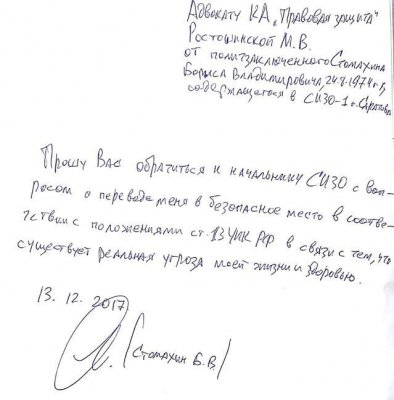 Адвокату КА „Правовая защита"
Ростошинской М.В.
от политзаключенного Стомахина
Бориса Владимировича, 24.8.1974 г.р,
содержащегося в СИЗО-1 г. Саратова
Прошу Вас обратиться к начальнику СИЗО с воп-
росом о переводе меня в безопасное место в соотве-
тствии с положениями ст. 13 УИК РФ в связи с тем, что
существует реальная угроза моей жизни и здоровью.
13.12.2017
/Стомахин Б.В./